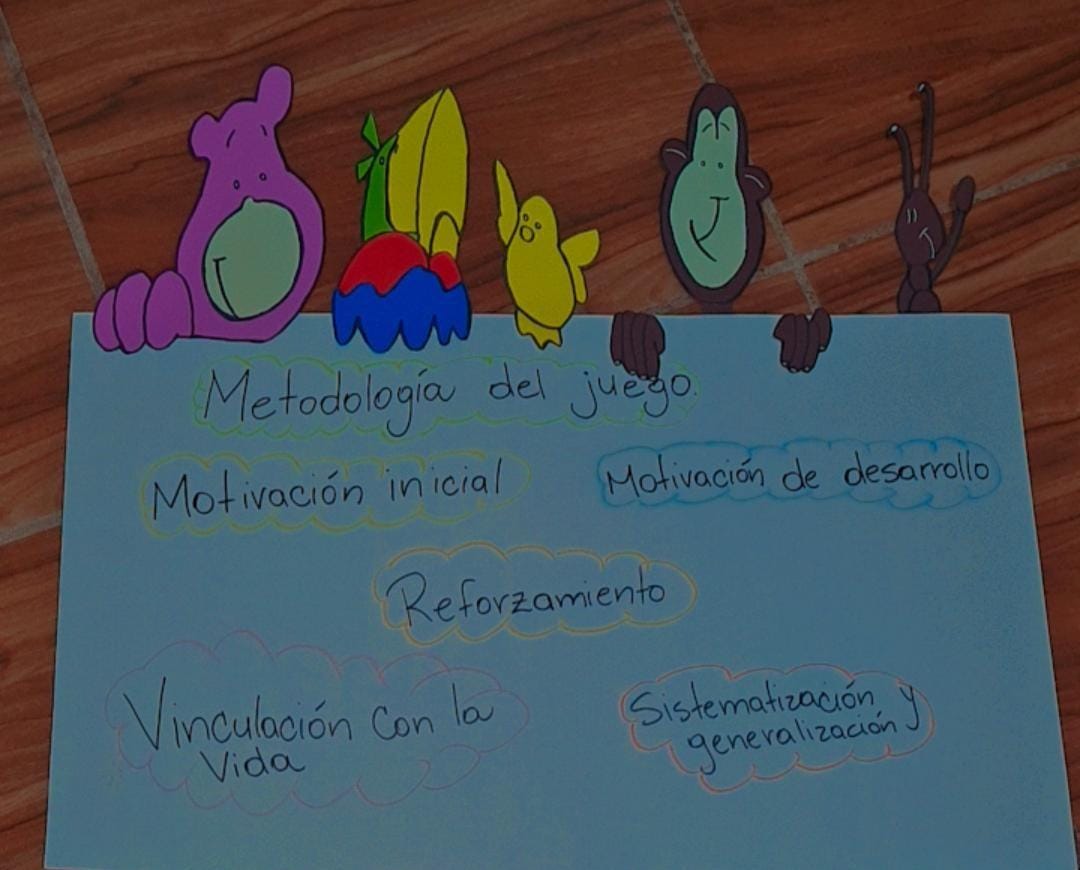 Metodología del juego.
Motivación inicial
Motivación de desarrollo
Reforzamiento
Vinculación con la
Vida
Sistematización y
generalización